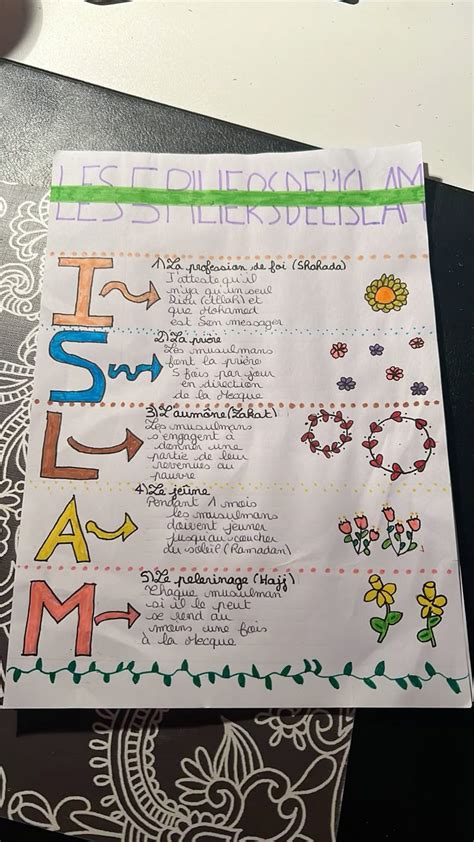 LES 5 PILIERS DE L'ISLAM
I
1) La profession de foi (Shahada)
J'atteste qu'il
n'ya qu'un seul
Dieu (Allah) et
que Mohamed
est Son messager
S
2) La prière
Les musulmans
font la prière
5 fois par jour
en direction
de la Mecque
L
3) L'aumône (Zakat)
Les musulmans
s'engagent à
donner une
partie de leur
revenues au
pauvre
A
4) Le jeûne
Pendant 1 mois
les musulmans
doivent jeuner
jusqu'au coucher
du soleil (Ramadan)
M
5) Le pelerinage (Hajj)
Chaque musulman
si il le peut
se rend au
moins une fois
à la Mecque